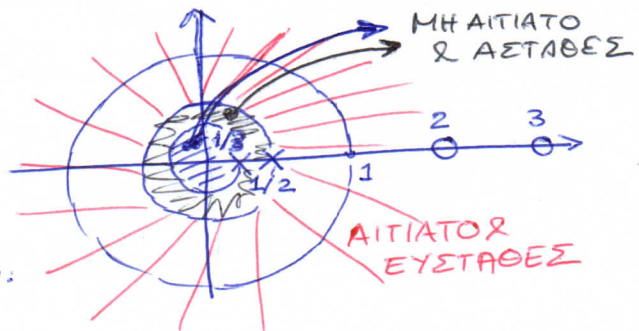 ΜΗ ΑΙΤΙΑΤΟ
& ΑΣΤΑΘΕΣ
2 3
1/3
1/2 1
ΑΙΤΙΑΤΟ &
ΕΥΣΤΑΘΕΣ
: